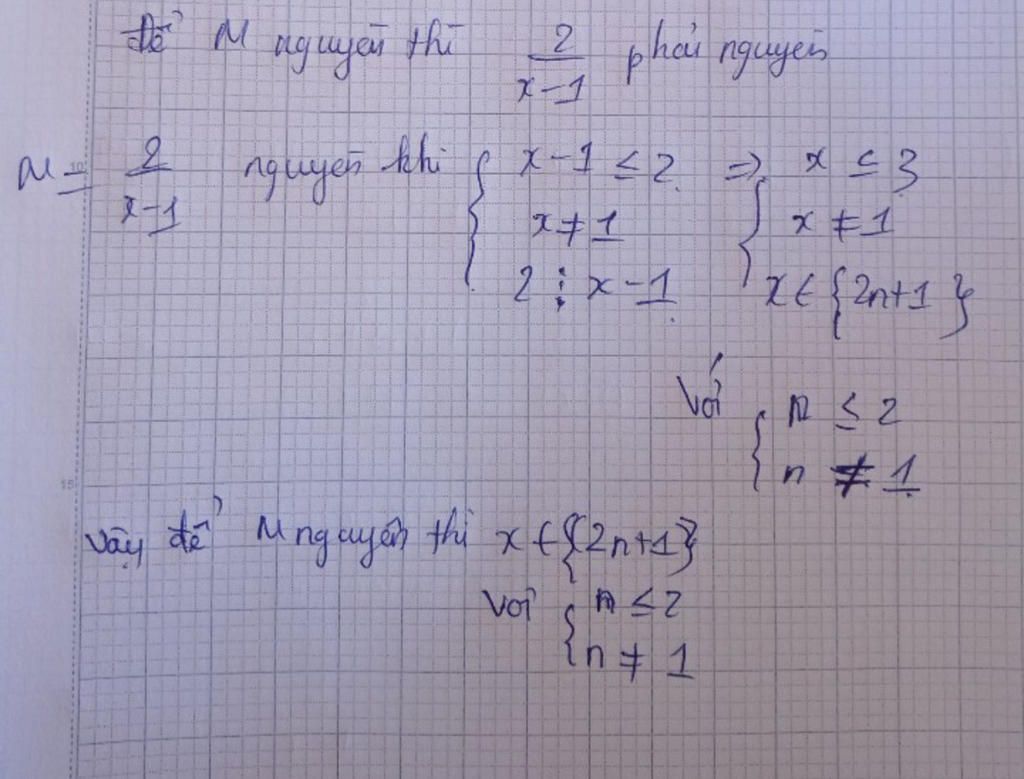 Để M nguyên thì 2/(x-1) phải nguyên
M = 2/(x-1) nguyên khi { x-1 ≤ 2 => { x ≤ 3
x ≠ 1 x ≠ 1
2 ⋮ x-1 x ∈ {2n+1}
Với { n ≤ 2
n ≠ 1
Vậy để M nguyên thì x ∈ {2n+1}
Với { n ≤ 2
n ≠ 1
10
15